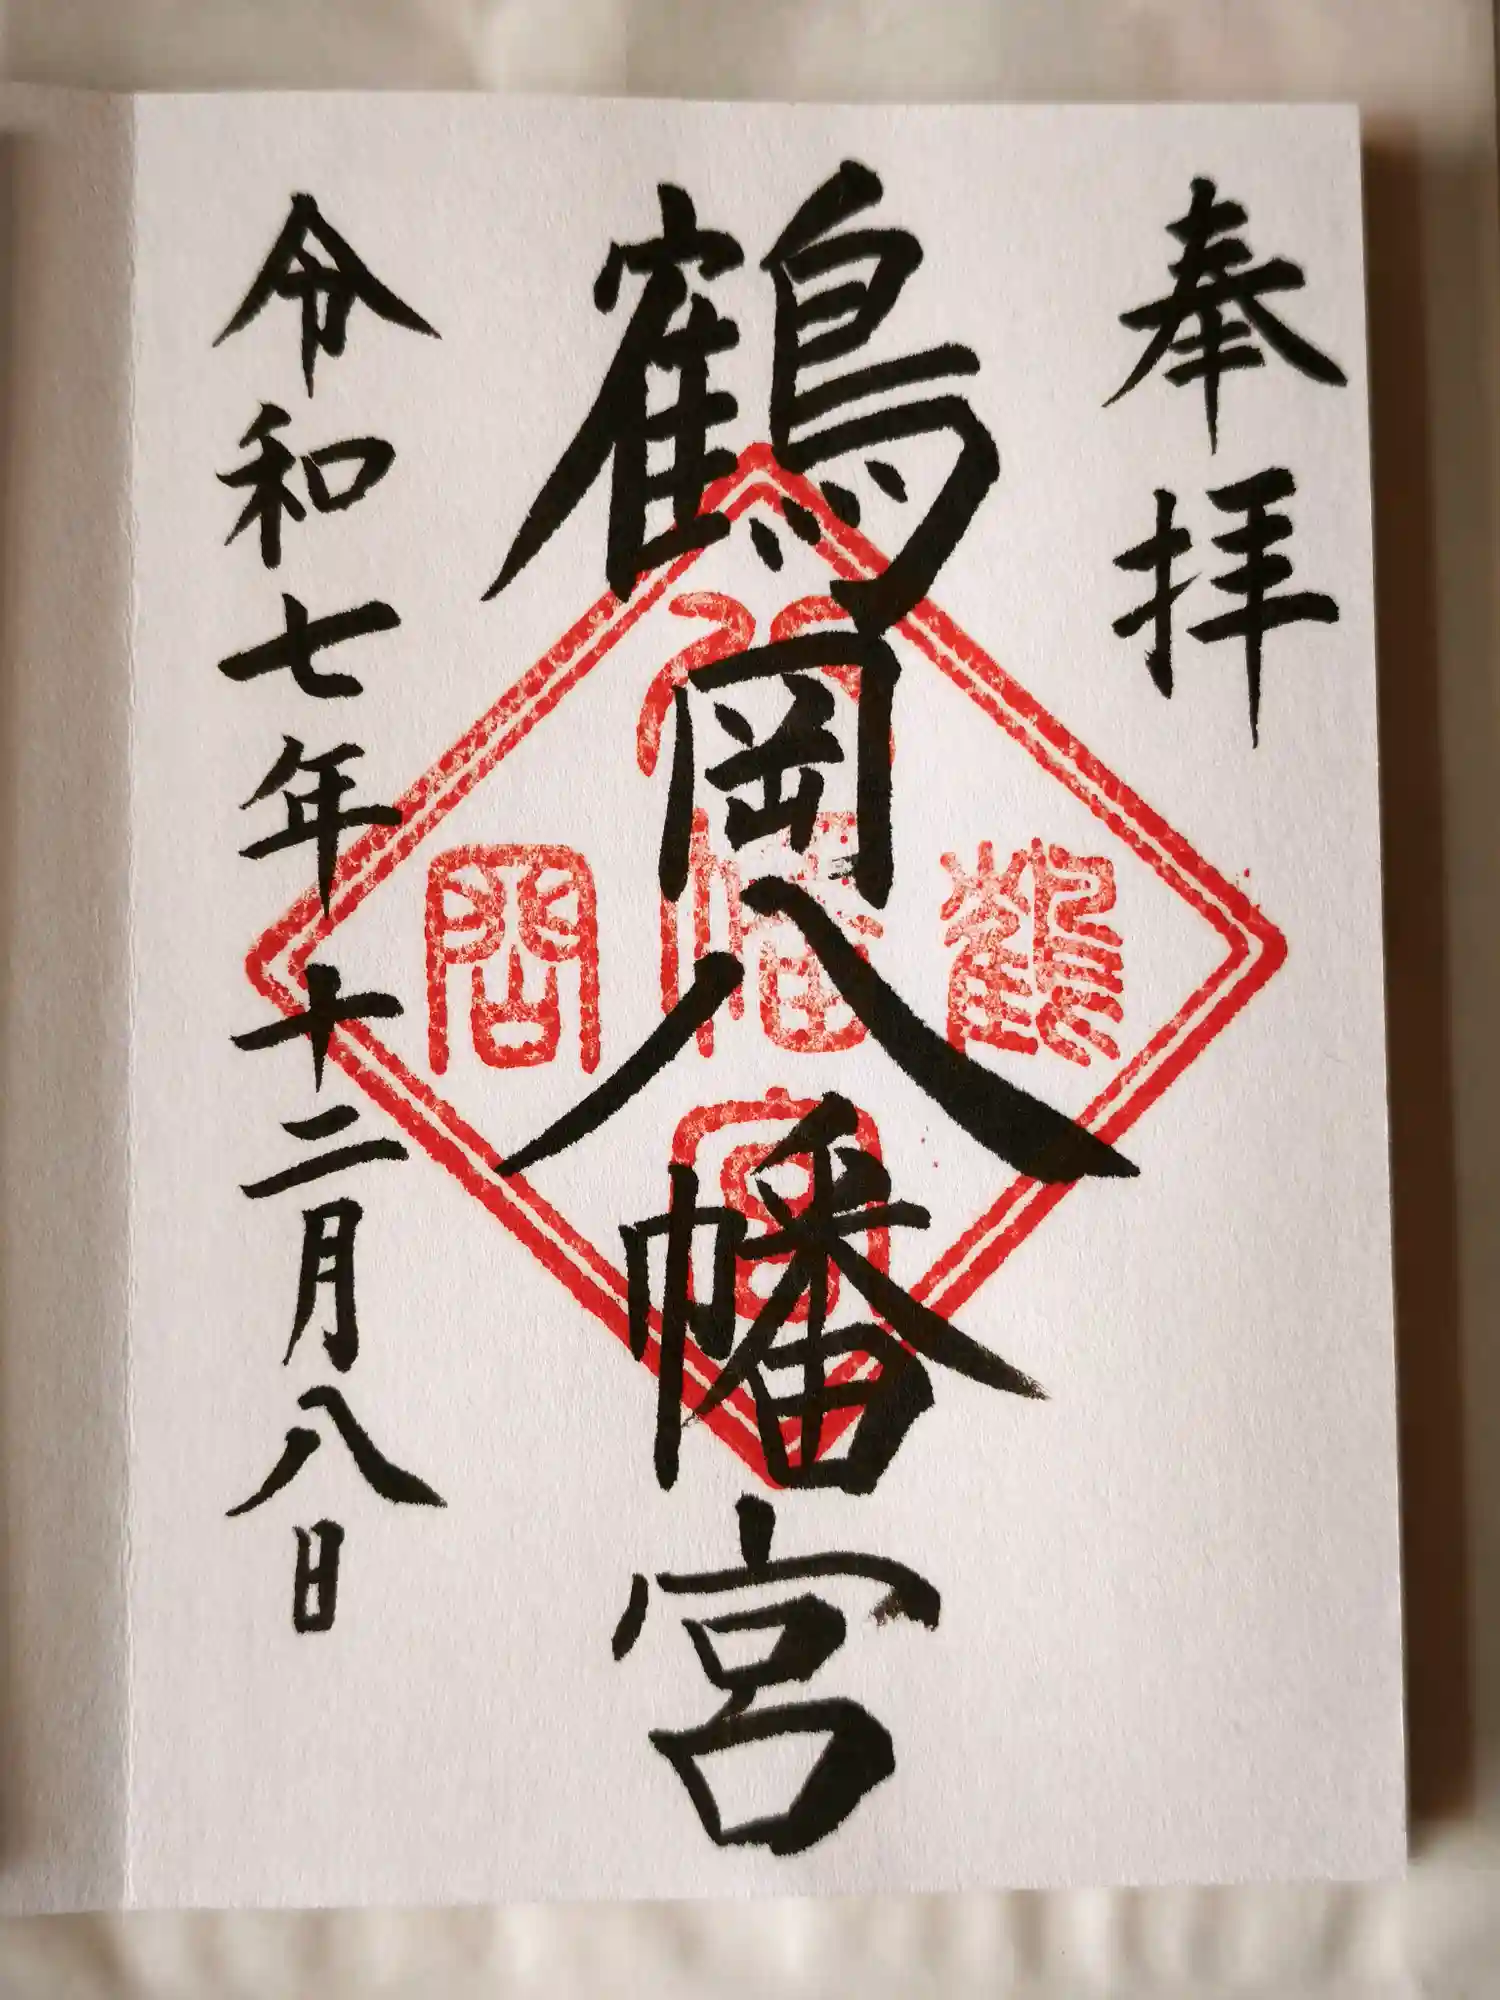 奉拝
鶴岡八幡宮
令和七年十二月八日
鶴
八
幡
宮
岡